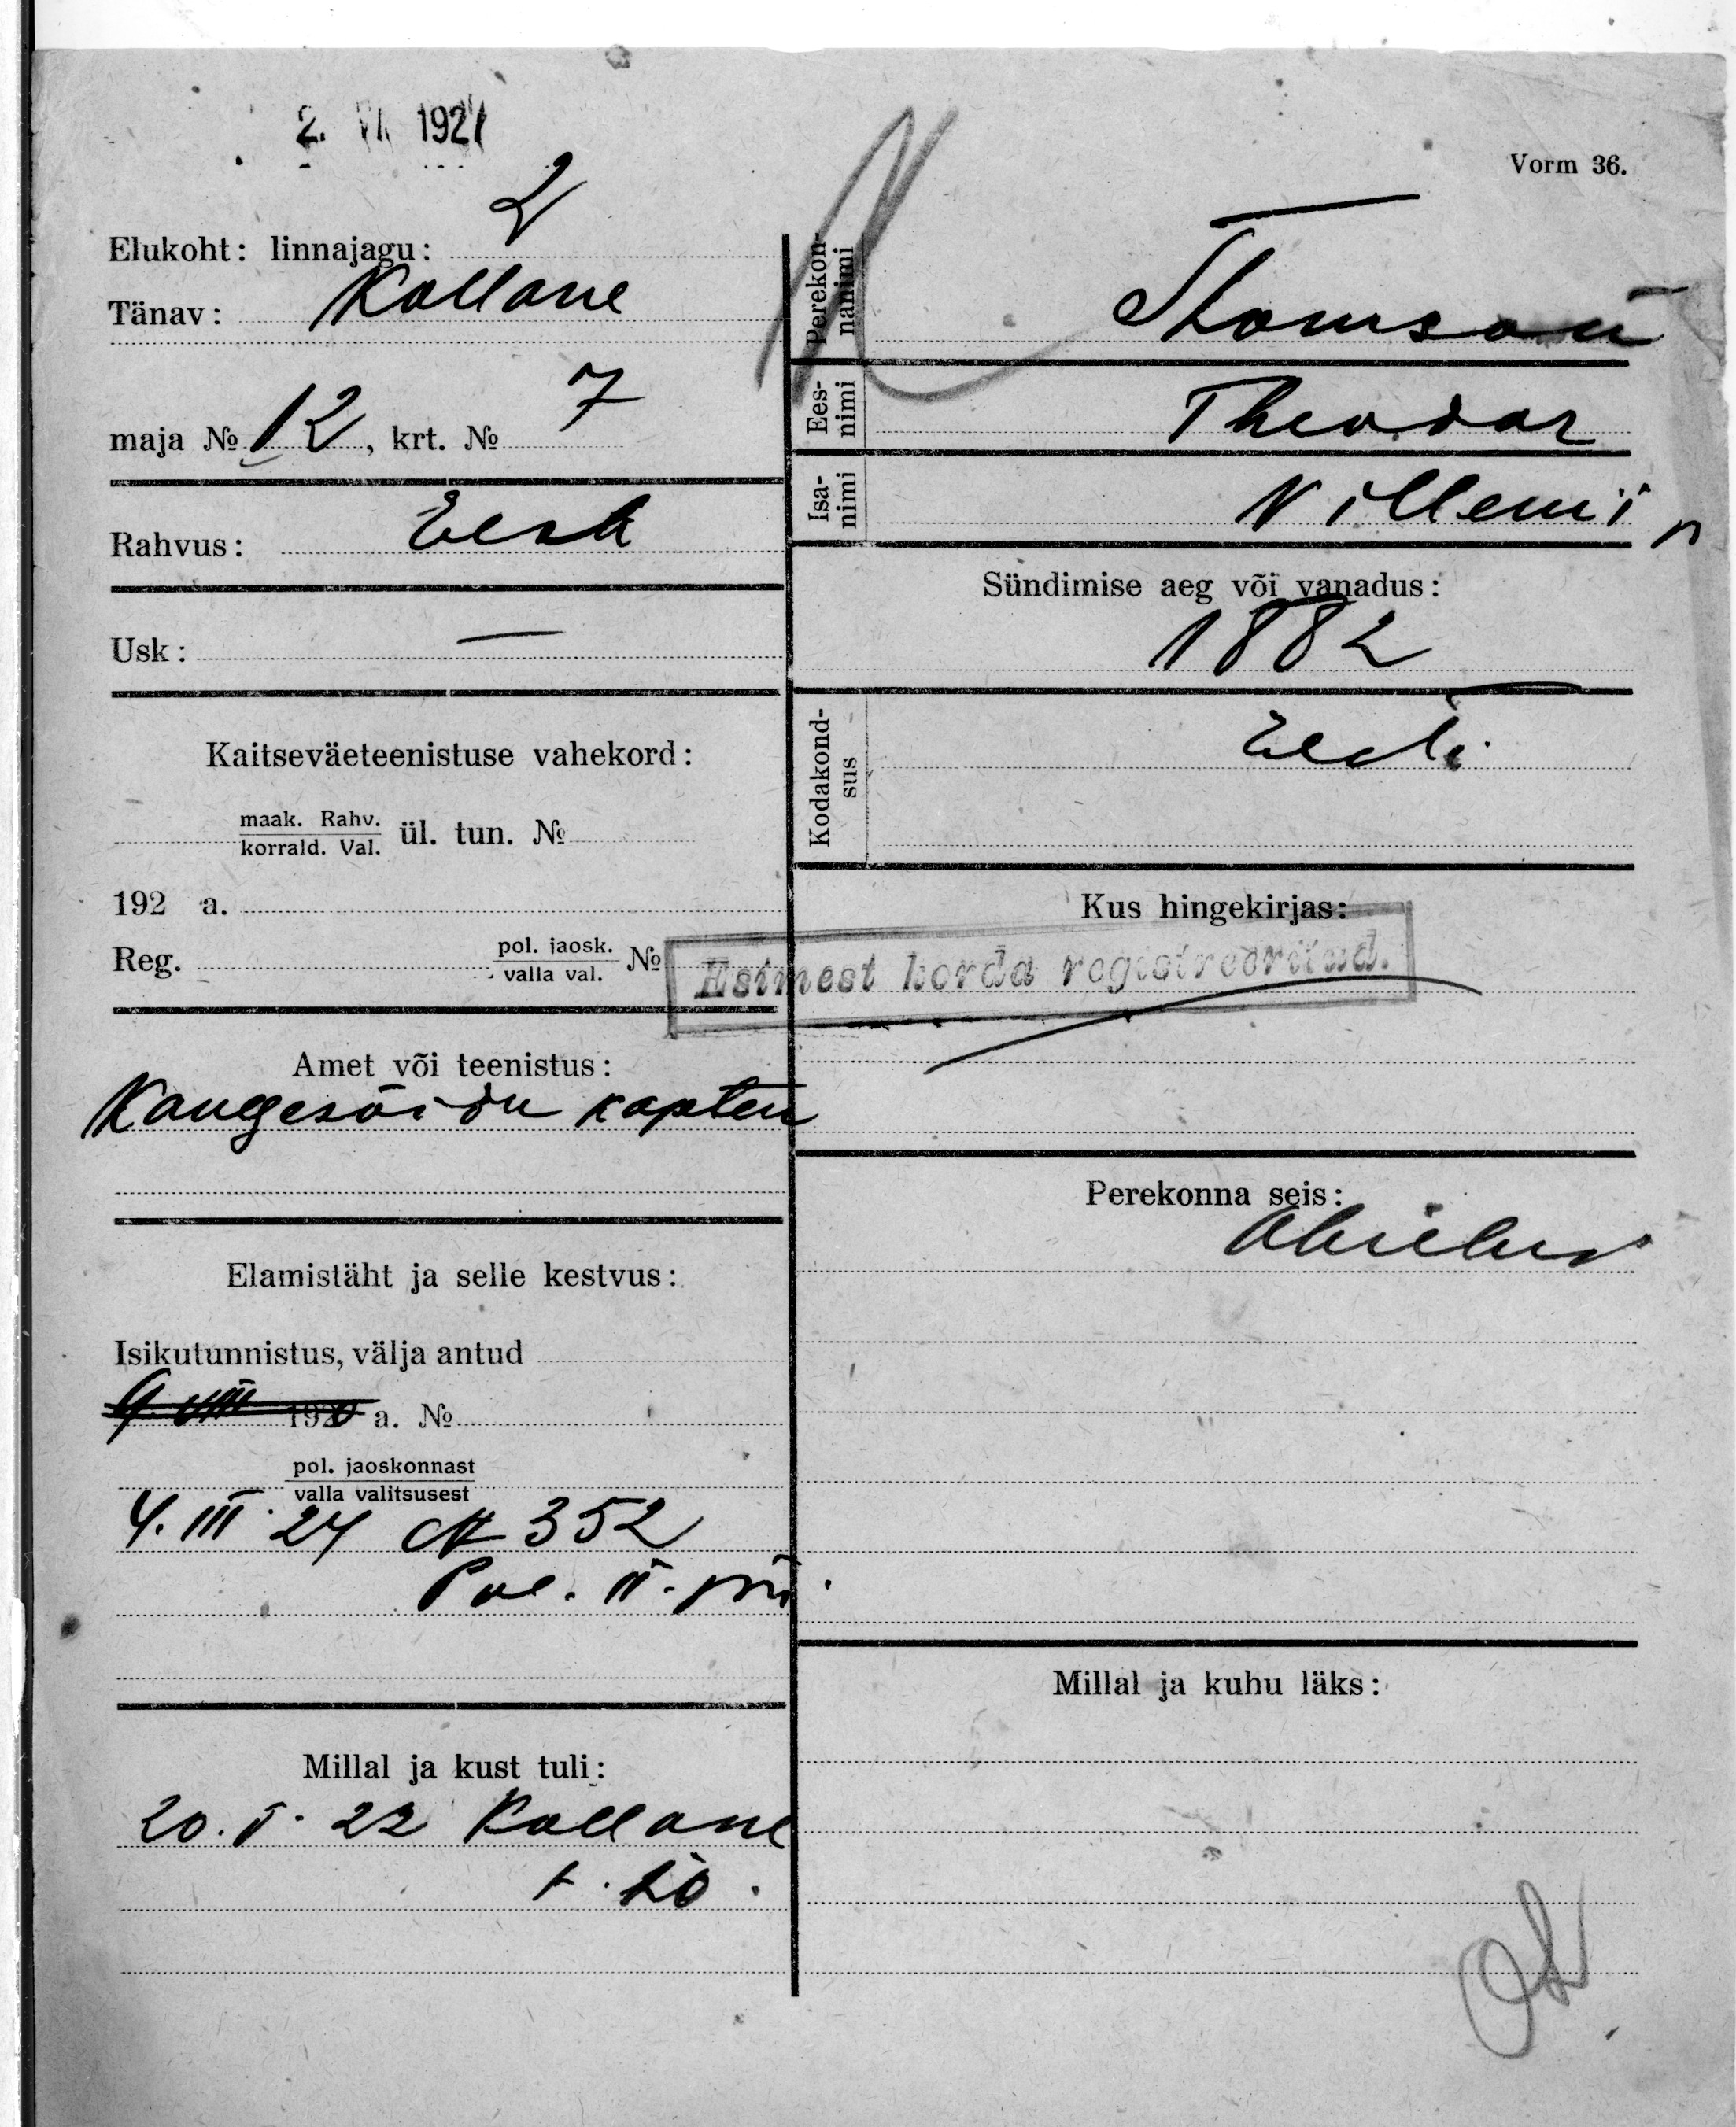 2. VII 1927
Vorm 36.
2
Elukoht: linnajagu:
Tänav: Kollane
maja № 12, krt. № 7
Rahvus: Eesti
Usk: —
Kaitseväeteenistuse vahekord:
maak. Rahv.
korrald. Val. ül. tun. №
192 a.
Reg. pol. jaosk.
valla val. №
Amet või teenistus:
Kaugesõidu kapten
Elamistäht ja selle kestvus:
Isikutunnistus, välja antud
9 VIII 1920 a. №
pol. jaoskonnast
valla valitsusest
4. III 24 № 352
Pol. II.
Millal ja kust tuli:
20. V. 22 Kollane
t. 10.
Perekon-
nanimi
Thomson
Ees-
nimi
Theodor
Isa-
nimi
Villemi p
Sündimise aeg või vanadus:
1882
Kodakond-
sus
Eesti
Kus hingekirjas:
Esimest korda registreeritud.
Perekonna seis:
Abielus
Millal ja kuhu läks: